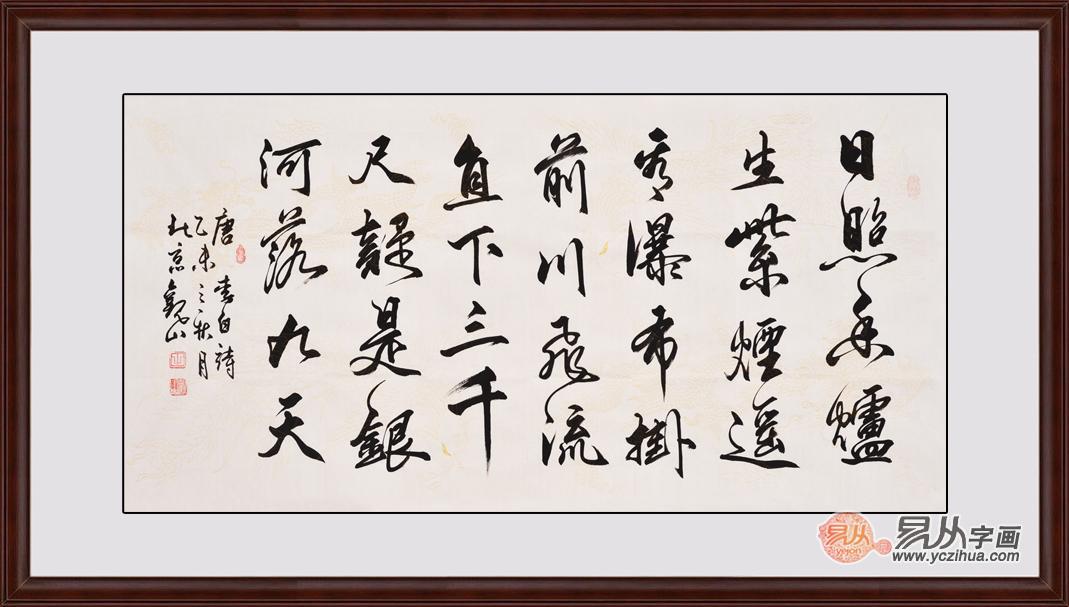 日照香爐
生紫煙遥
看瀑布掛
前川飛流
直下三千
尺疑是銀
河落九天
唐李白詩
乙未之秋月
北京山
易从
易从字画
www.yczihua.com